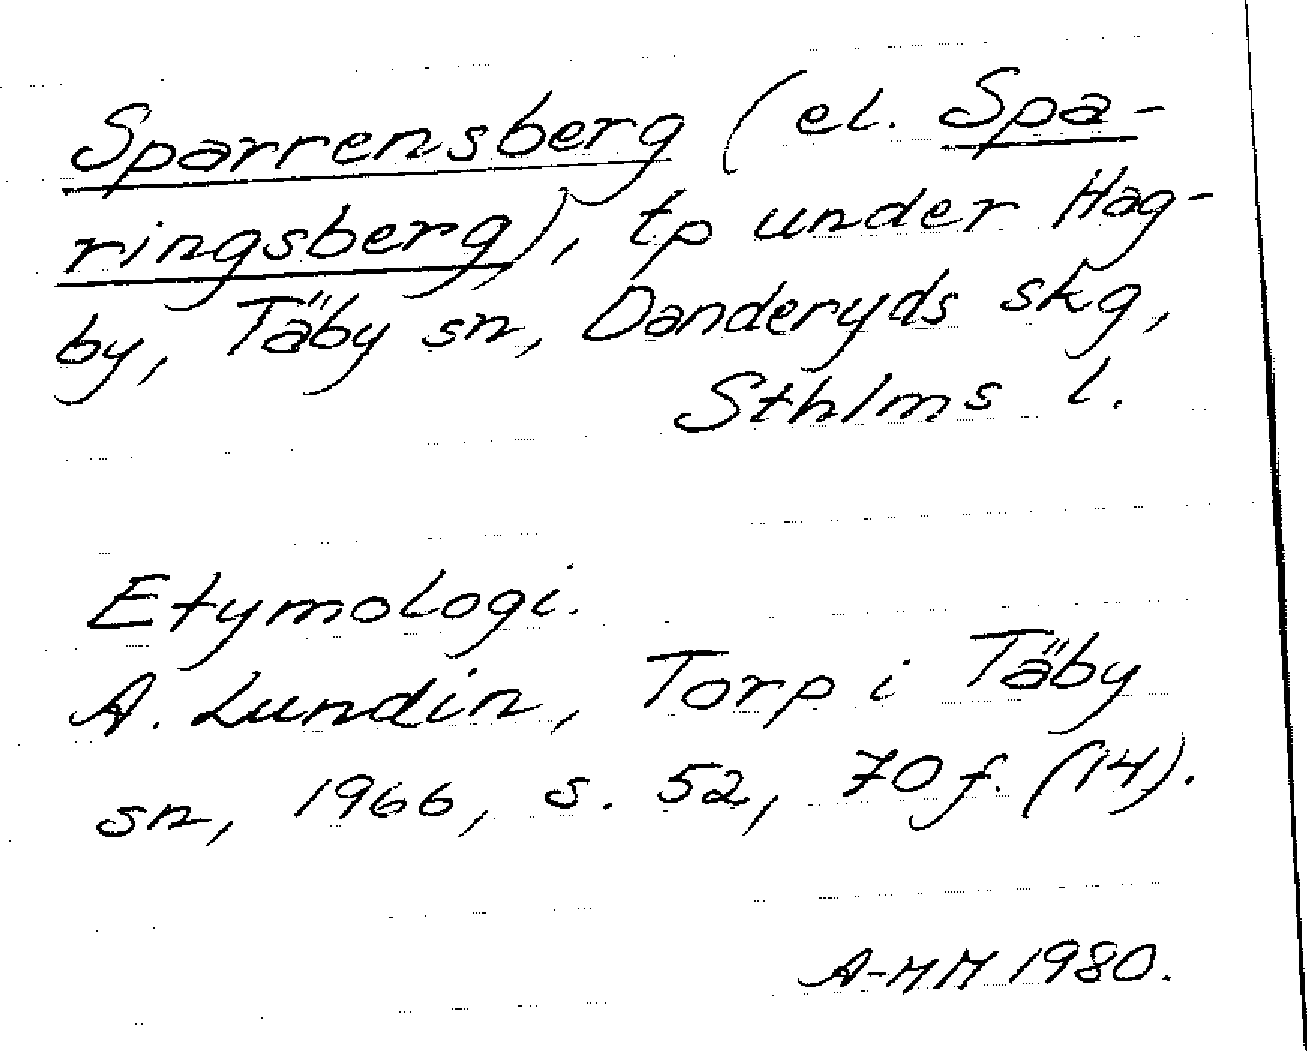 Sparrensberg (el. Spa-
ringsberg), tp under Hag-
by, Täby sn, Danderyds skg,
Sthlms l.
Etymologi.
A. Lundin, Torp i Täby
sn, 1966, s. 52, 70 f. (14).
A-MM 1980.